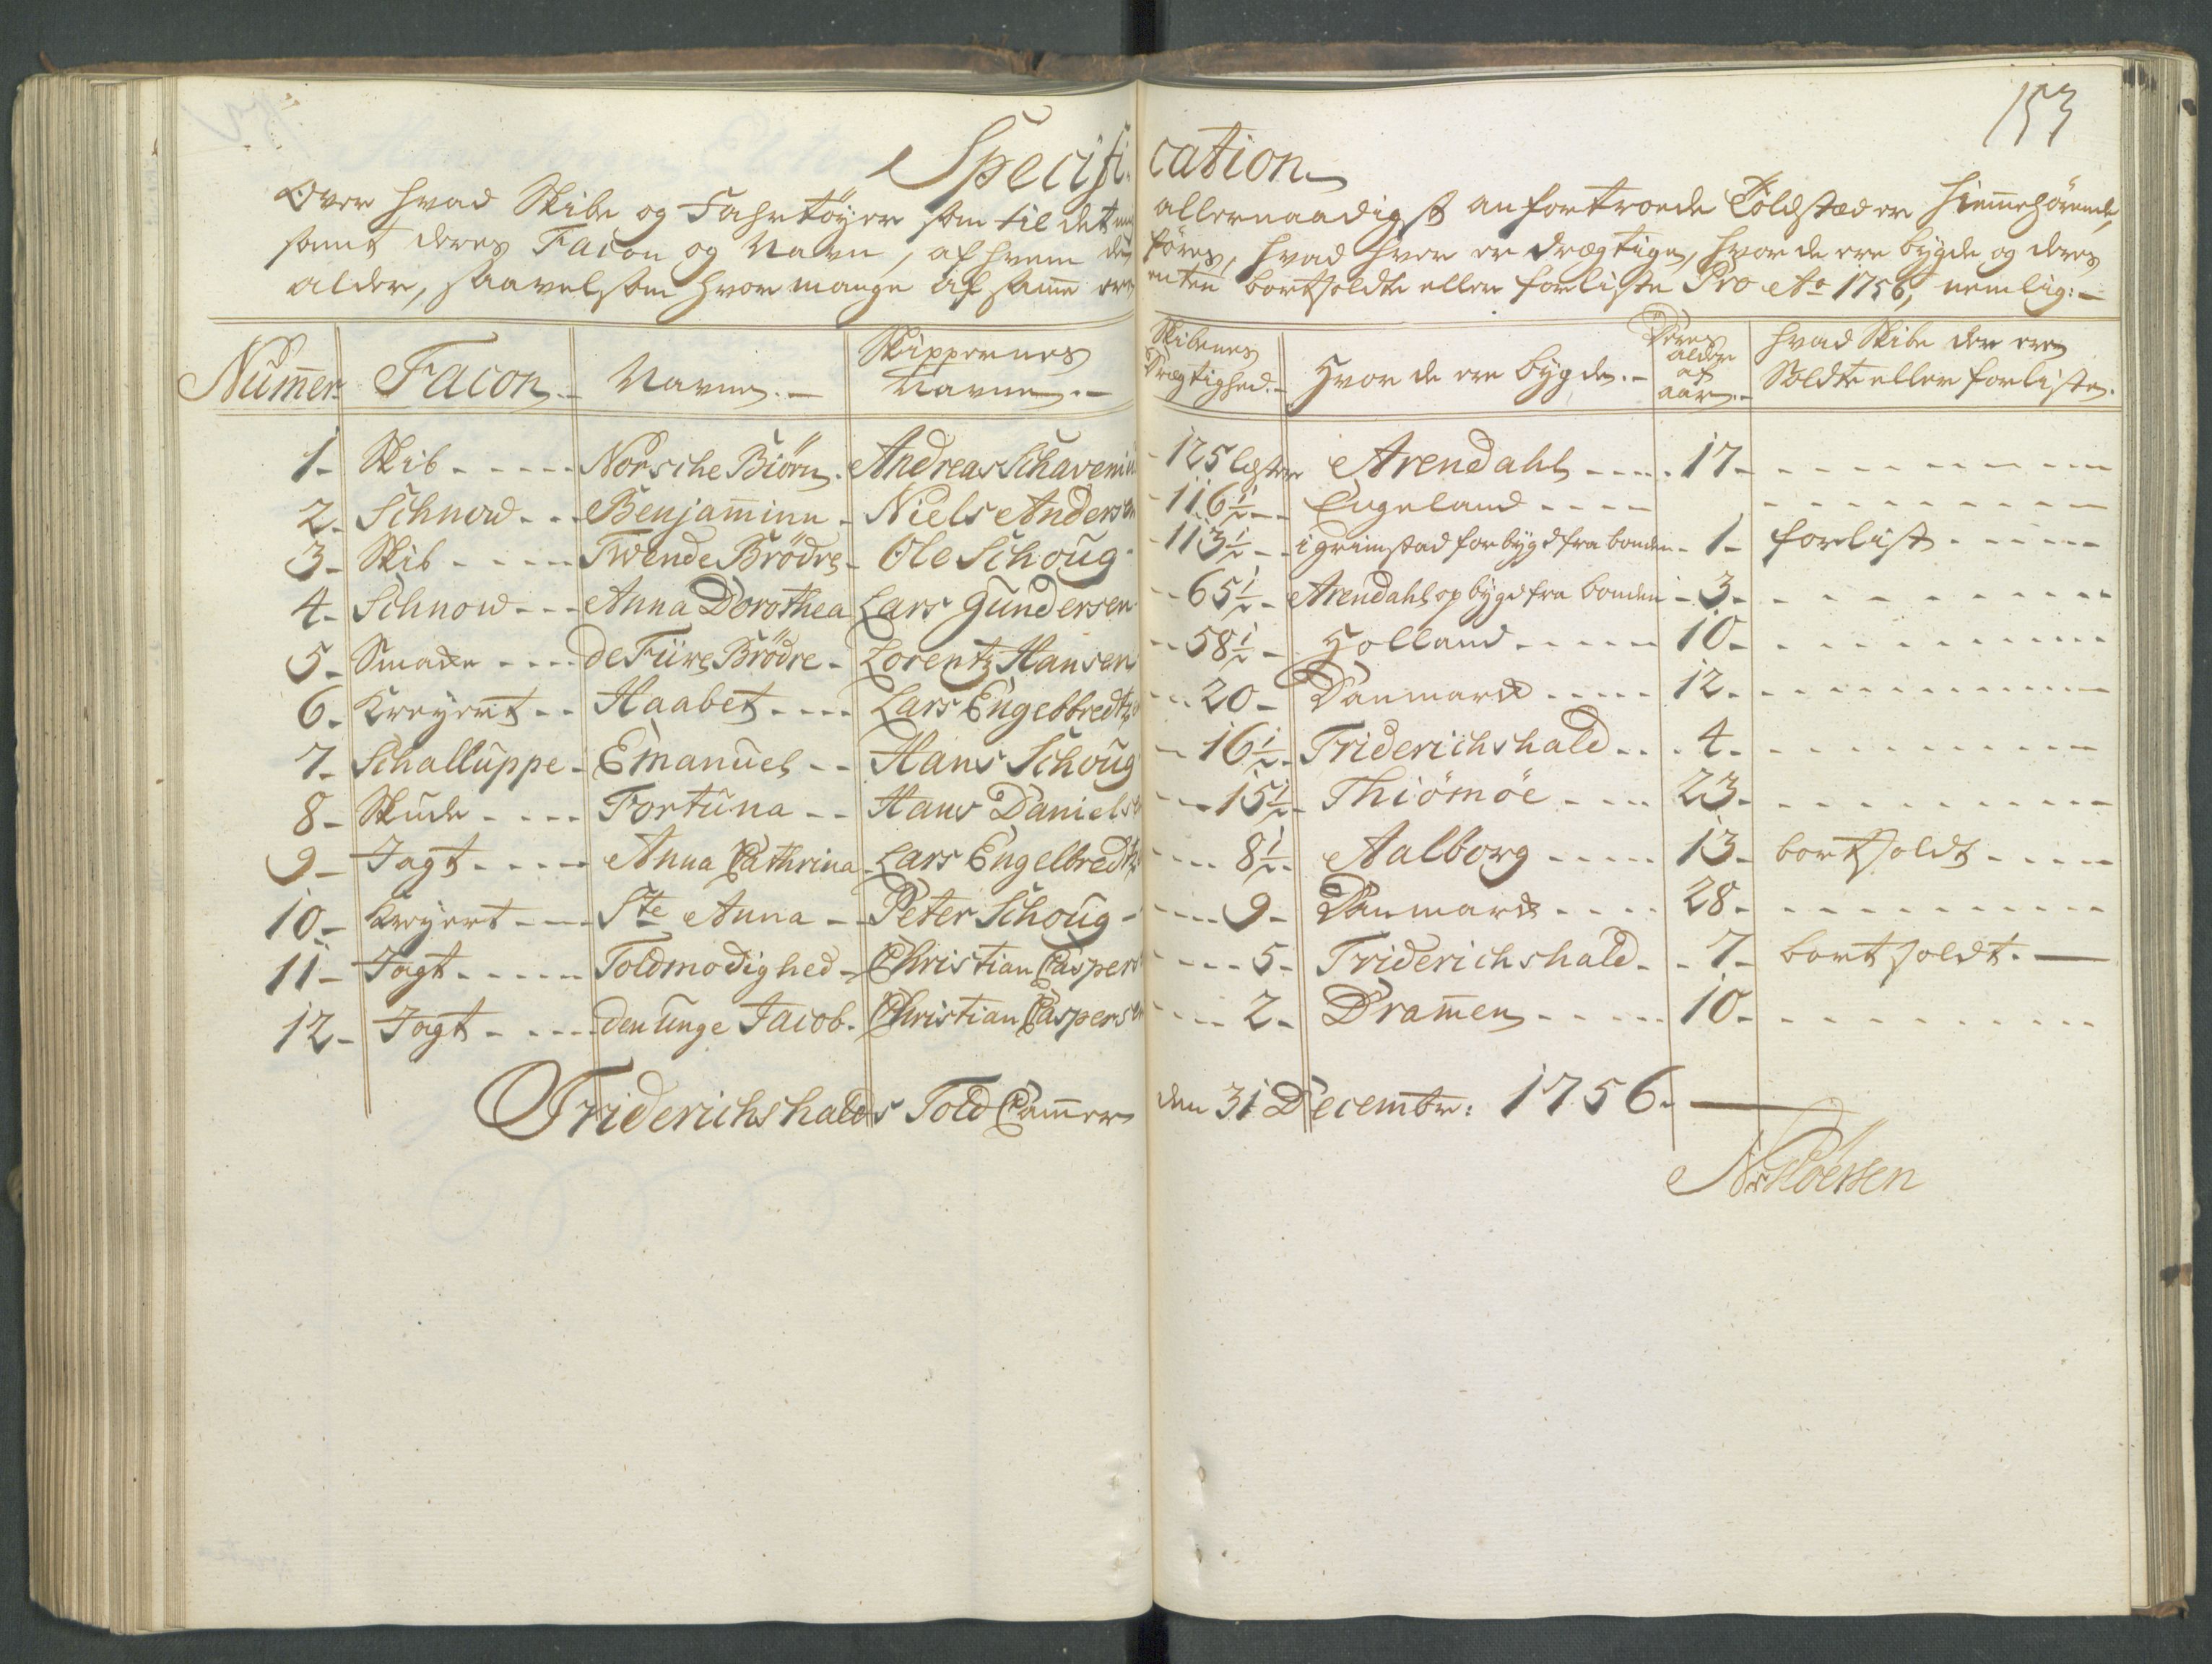 153
Specification
Over hvad Skibe og Fahrtöyer som til det mig allernaadigst anfortroede Toldstæd er hiemehörende,
samt deres Facon og Navn, af hvem de föres, hvad hver er drægtige, hvor de ere bygde og deres
alder, saavelsom hvor mange af same ere enten bortsoldte eller forliste Pro Ao 1756, nemlig:-
Numer Facon.- Navne.- Skippernes Navne.- Skibenes Drægtighed.- Hvor de ere bygde.- Deres alder af aar.- hvad Skibe der ere Soldte eller forliste.
1- Skib - - - - - Norsche Biörn. Andreas Schaveniu - 125 læster Arendahl - - - - 17-
2- Schnow - - - Benjamin - Niels Andersen - 116 1/2 - Engeland - - - -
3- Skib - - - - Twende Brödre - Ole Schoug - 113 1/2 - - i Grimstad forbygd fra bonden - 1- forlist - - - - -
4- Schnow - - - Anna Dorothea Lars Gundersen - - 65 1/2 - Arendahl opbygd fra bonden - 3-
5- Smakke - - - - de Fiire Brödre - Lorentz Hansen - - 58 1/2 - Holland - - - - - 10-
6- Kreyert - - Haabet - - - - Lars Engebbredtz - - 20- Danmark - - - - - 12-
7- Schalluppe - Emanuel - - Hans Schoug - 16 1/2 - Friderichshald - - 4-
8- Skude - - - - Fortuna - - Hans Daniels - - 15 1/2 - Thiömöe - - - - 23-
9- Jagt - - - - - Anna Cathrina - Lars Engelbredtz - - - 8 1/2 - Aalborg - - - - - 13- bortsoldt - - - - -
10- Kreyert - - - Ste Anna - - Peter Schoug - - - - - 9- Danmark - - - - 28-
11- Jagt - - - - - Toldmodighed - Christian Caspers - - - - 5- Friderichshald - - 7- bortsoldt. -
12- Jagt - - - - - den unge Jacob. Christian Caspersen - - - - 2- Dramen - - - - - 10-
Friderichshalds Told Camer den 31 Decembr: 1756. -